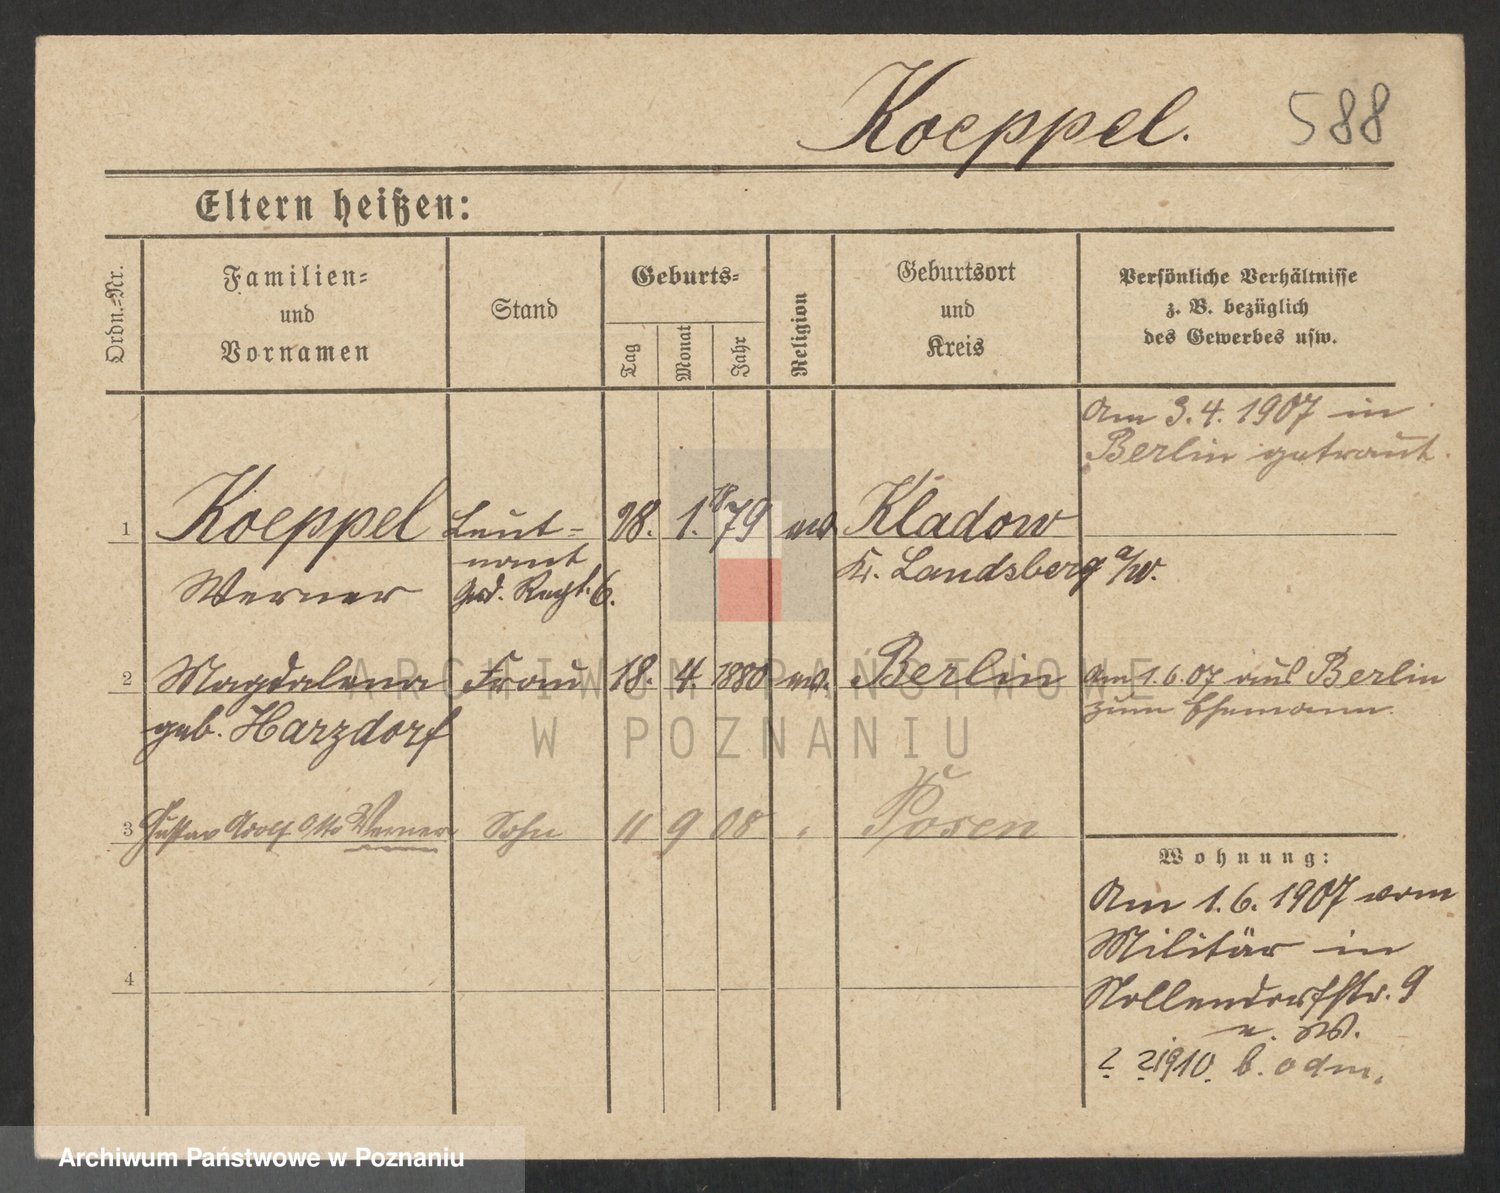 Koeppel.
588
Eltern heißen:
Ordn.-Nr.
Familien-
und
Vornamen
Stand
Geburts-
Tag
Monat
Jahr
Religion
Geburtsort
und
Kreis
Persönliche Verhältnisse
z. B. bezüglich
des Gewerbes usw.
Am 3.4.1907 in
Berlin getraut.
1 Koeppel Leut- 28. 1. 79 ev. Kladow
nant Kr. Landsberg a/W.
Werner Regt. 6.
2 Magdalena Frau 18. 4. 1880 ev. Berlin Am 1.6.07 aus Berlin
geb. Harzdorf zum Ehemann.
3 Gustav Adolf Otto Werner Sohn 11 9 08 Posen
Wohnung:
Am 1.6.1907 vom
Militär in
Nollendorfstr. 9
4
1910. b.
ARCHIWUM PAŃSTWOWE
W POZNANIU
Archiwum Państwowe w Poznaniu